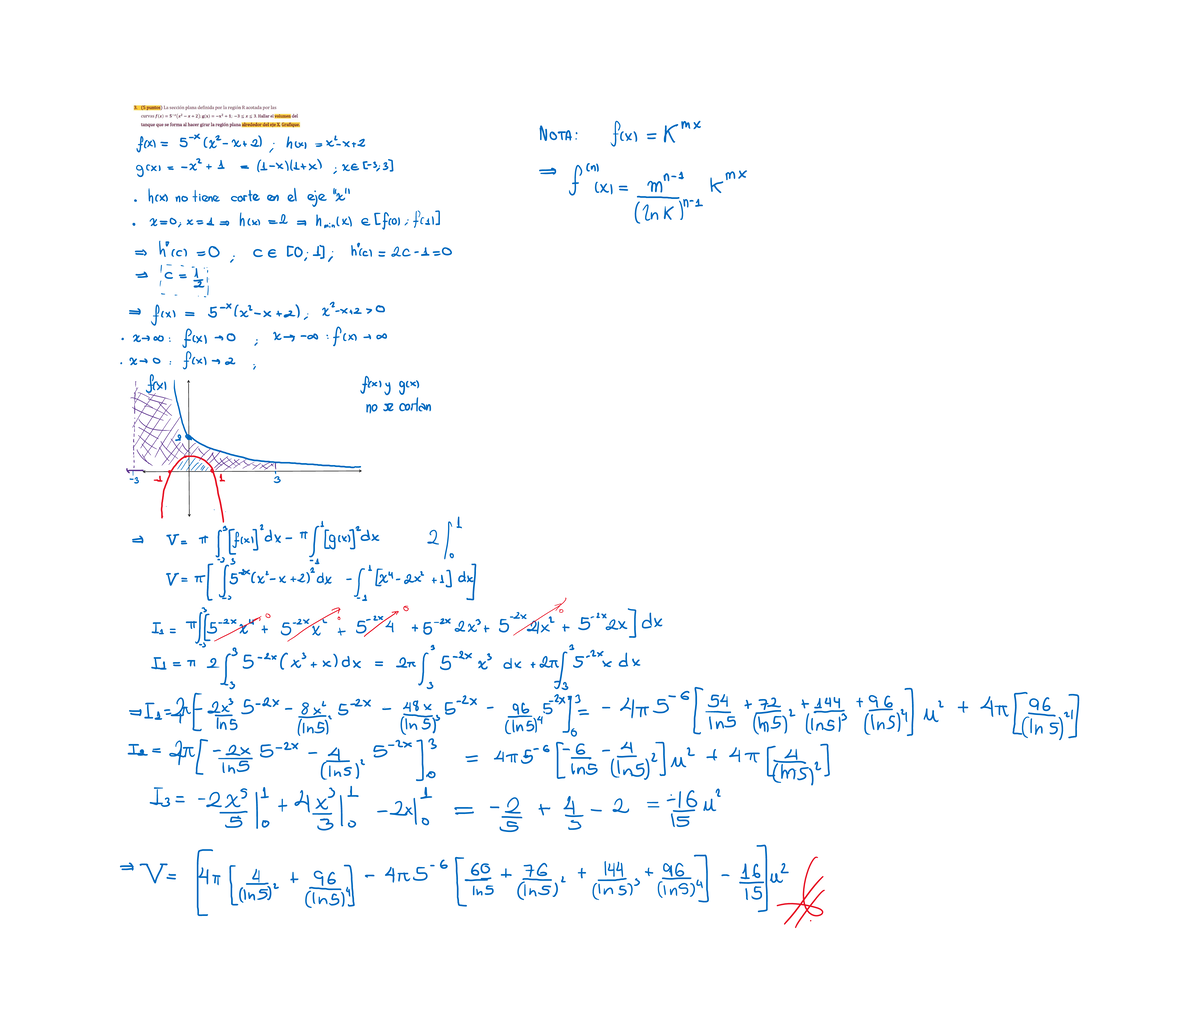 3. (5 puntos) La sección plana definida por la región R acotada por las
curvas f(x) = 5⁻ˣ(x² − x + 2), g(x) = −x² + 1; −3 ≤ x ≤ 3. Hallar el volumen del
tanque que se forma al hacer girar la región plana alrededor del eje X. Grafique.
f(x) = 5^-x (x²-x+2) ; h(x) = x²-x+2
g(x) = -x² + 1 = (1-x)(1+x) ; x∈[-3;3]
• h(x) no tiene corte en el eje "x"
• x=0, x=1 ⇒ h(x) = 2 ⇒ h_min(x) ∈ [f(0); f(1)]
⇒ h'(c) = 0 ; c ∈ [0;1]; h'(c) = 2c-1=0
⇒ c = 1/2
⇒ f(x) = 5^-x (x²-x+2), x²-x+2>0
• x→∞: f(x)→0 ; x→-∞: f(x)→∞
• x→0 : f(x)→2 ;
NOTA: f(x) = K^mx
⇒ f^(n)(x) = m^n-1/(ln K)^n-1 K^mx
f(x)
f(x) y g(x)
no se cortan
2
-3 -1 1 3
⇒ V = π ∫_-3^3 [f(x)]² dx - π ∫_-1^1 [g(x)]² dx 2∫_0^1
V = π[ ∫_-3^3 5^-2x (x²-x+2)² dx - ∫_-1^1 [x⁴-2x²+1] dx]
I₁ = π∫_-3^3 [5^-2x x⁴ + 5^-2x x² + 5^-2x 4 + 5^-2x 2x³ + 5^-2x 4x² + 5^-2x 2x] dx
I₁ = π 2∫_-3^3 5^-2x (x³+x) dx = 2π∫_3^3 5^-2x x³ dx + 2π∫_-3^3 5^-2x x dx
⇒ I₁ = 2π[-2x³/ln5 5^-2x - 8x²/(ln5)² 5^-2x - 48x/(ln5)³ 5^-2x - 96/(ln5)⁴ 5^-2x]_0^3 = -4π5^-6 [54/ln5 + 72/(ln5)² + 144/(ln5)³ + 96/(ln5)⁴] u² + 4π[96/(ln5)⁴]
I₂ = 2π[-2x/ln5 5^-2x - 4/(ln5)² 5^-2x]_0^3 = 4π5^-6 [-6/ln5 - 4/(ln5)²] u² + 4π[4/(ln5)²]
I₃ = -2x⁵/5 |_0^1 + 4x³/3 |_0^1 - 2x|_0^1 = -2/5 + 4/3 - 2 = -16/15 u²
⇒ V = [4π[4/(ln5)² + 96/(ln5)⁴] - 4π5^-6 [60/ln5 + 76/(ln5)² + 144/(ln5)³ + 96/(ln5)⁴] - 16/15] u²